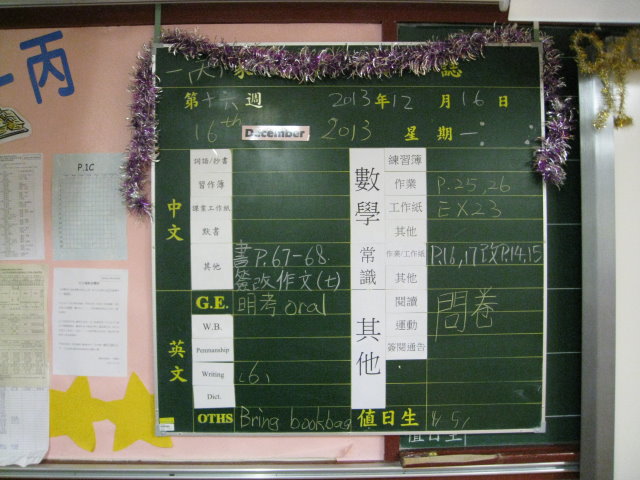 一丙
P.1C
誌
第十六週 2013年12月16日
16th December 2013 星期一
中文
詞語/抄書
習作簿
課業工作紙
默書
其他 書P.67-68
簽改作文(七)
英文
G.E. 明考oral
W.B.
Penmanship
Writing
Dict.
OTHS Bring bookbag
數學
練習簿
作業 P.25,26
工作紙 EX23
其他
常識
作業/工作紙 P.16,17改P.14,15
其他
其他
閱讀 問卷
運動
簽閱通告
值日生
值日生